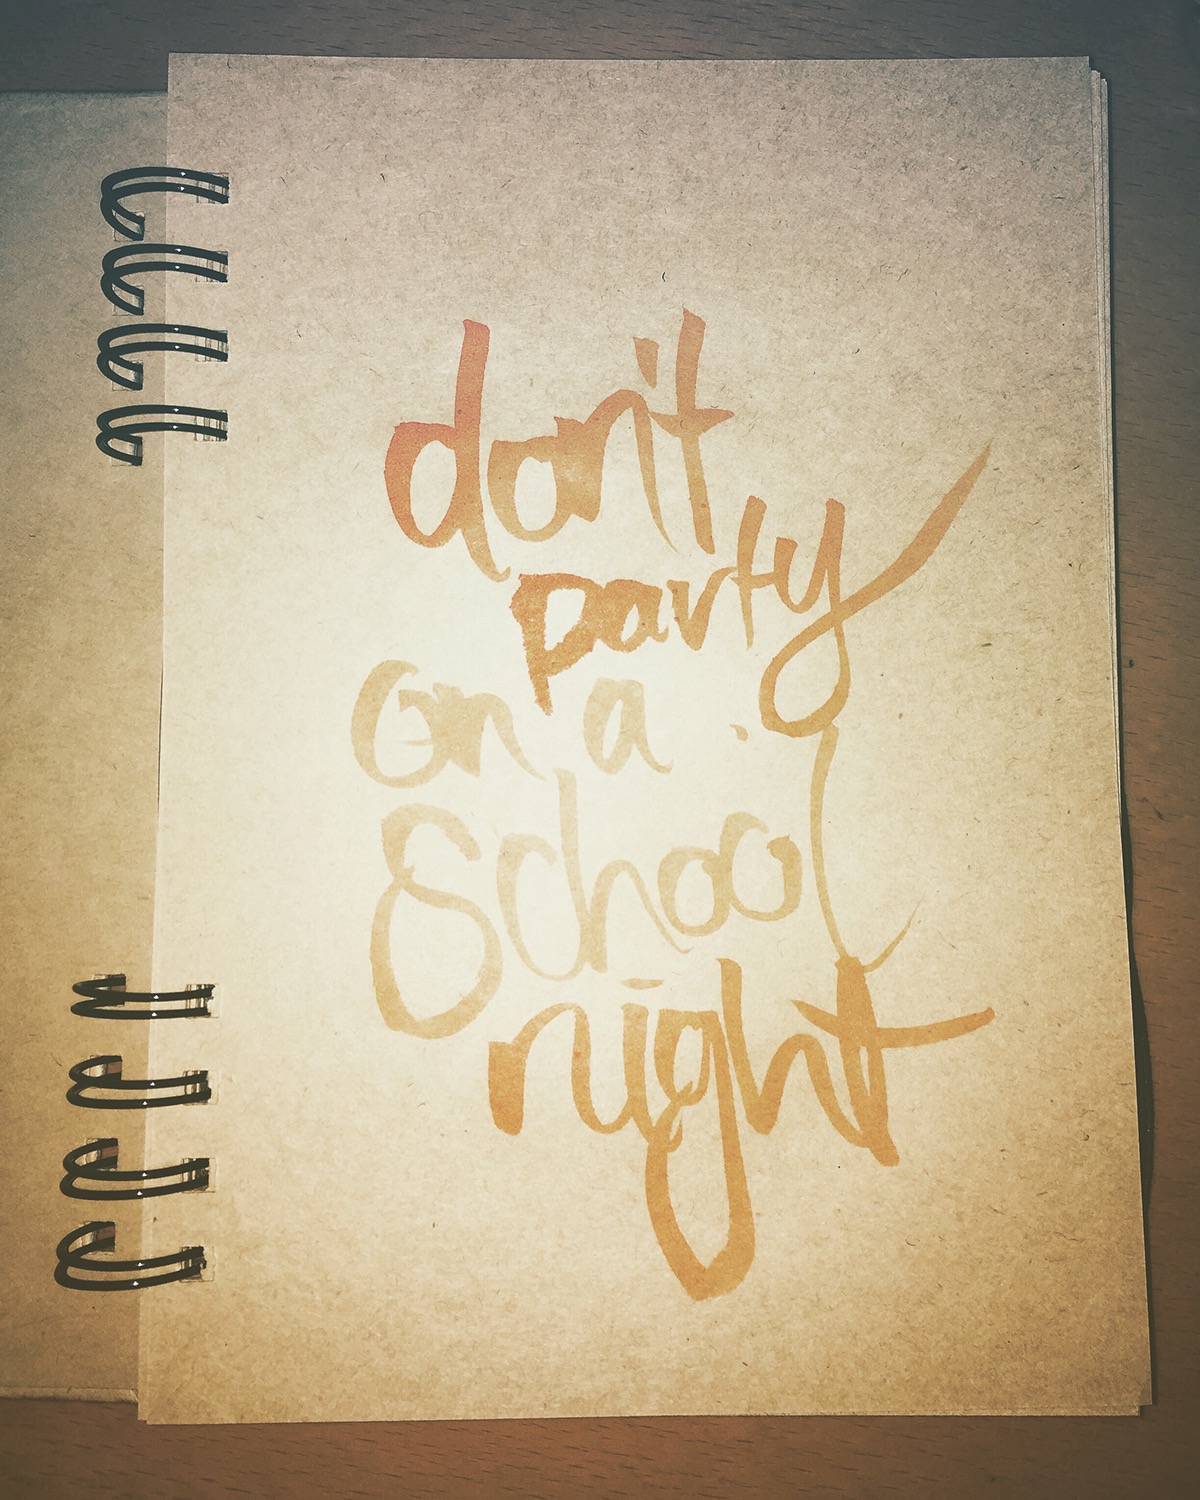 don't
party
on a
School
night